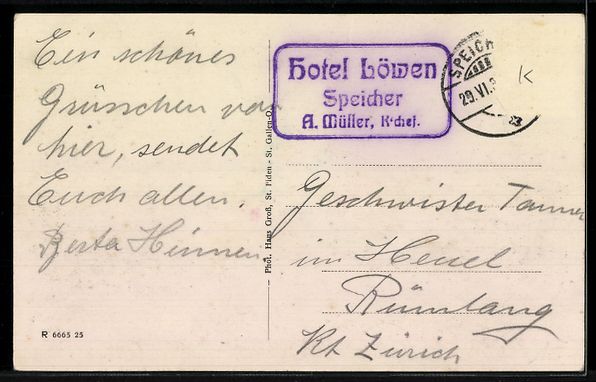 Ein schönes
Grüsschen von
hier, sendet
Euch allen.
Hinnen
R 6665 25
Phot. Hans Groß, St. Fiden - St. Gallen-O.
Hotel Löwen
Speicher
A. Müller, K'chef.
SPEICH
29.VI.
K
Geschwister Tanner
im
Rümlang
Kt Zürich